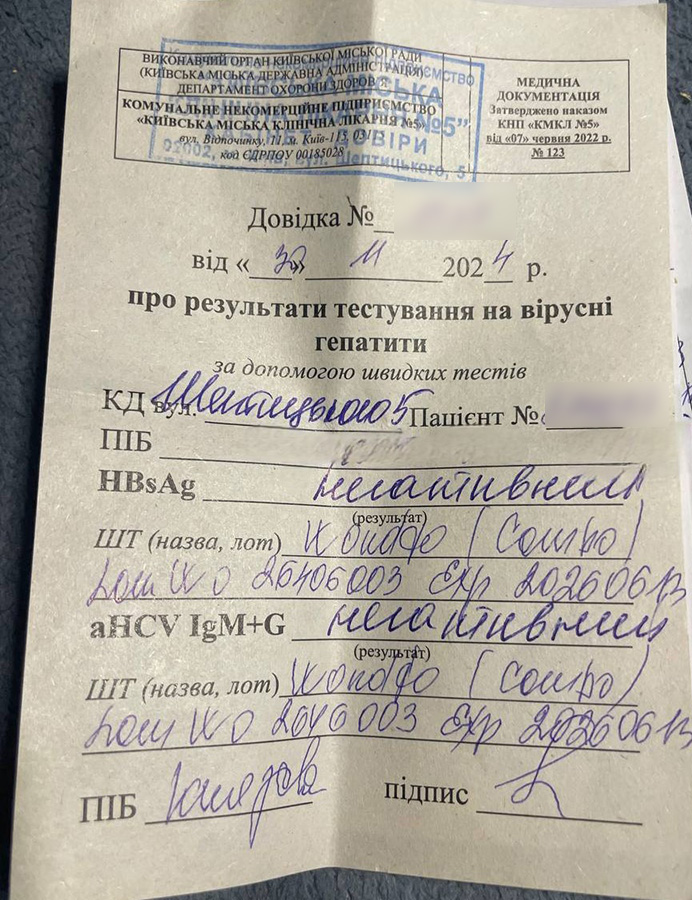 ВИКОНАВЧИЙ ОРГАН КИЇВСЬКОЇ МІСЬКОЇ РАДИ
(КИЇВСЬКА МІСЬКА ДЕРЖАВНА АДМІНІСТРАЦІЯ)
ДЕПАРТАМЕНТ ОХОРОНИ ЗДОРОВ'Я
КОМУНАЛЬНЕ НЕКОМЕРЦІЙНЕ ПІДПРИЄМСТВО
«КИЇВСЬКА МІСЬКА КЛІНІЧНА ЛІКАРНЯ №5»
вул. Відпочинку, 11, м. Київ-115, 03115
код ЄДРПОУ 00185028
МЕДИЧНА
ДОКУМЕНТАЦІЯ
Затверджено наказом
КНП «КМКЛ №5»
від «07» червня 2022 р.
№ 123
МІСЬКА
№5"
ДОВІРИ
вул. Шептицького, 5
Довідка №
від «30» 11 2024 р.
про результати тестування на вірусні
гепатити
за допомогою швидких тестів
КД вул. Шептицького 5 Пацієнт №
ПІБ
HBsAg негативний
(результат)
ШТ (назва, лот) Wondfo (Combo)
Lot WO 26406003 Exp 20260613
aHCV IgM+G негативний
(результат)
ШТ (назва, лот) Wondfo (Combo)
Lot WO 2646003 Exp 20260613
ПІБ підпис